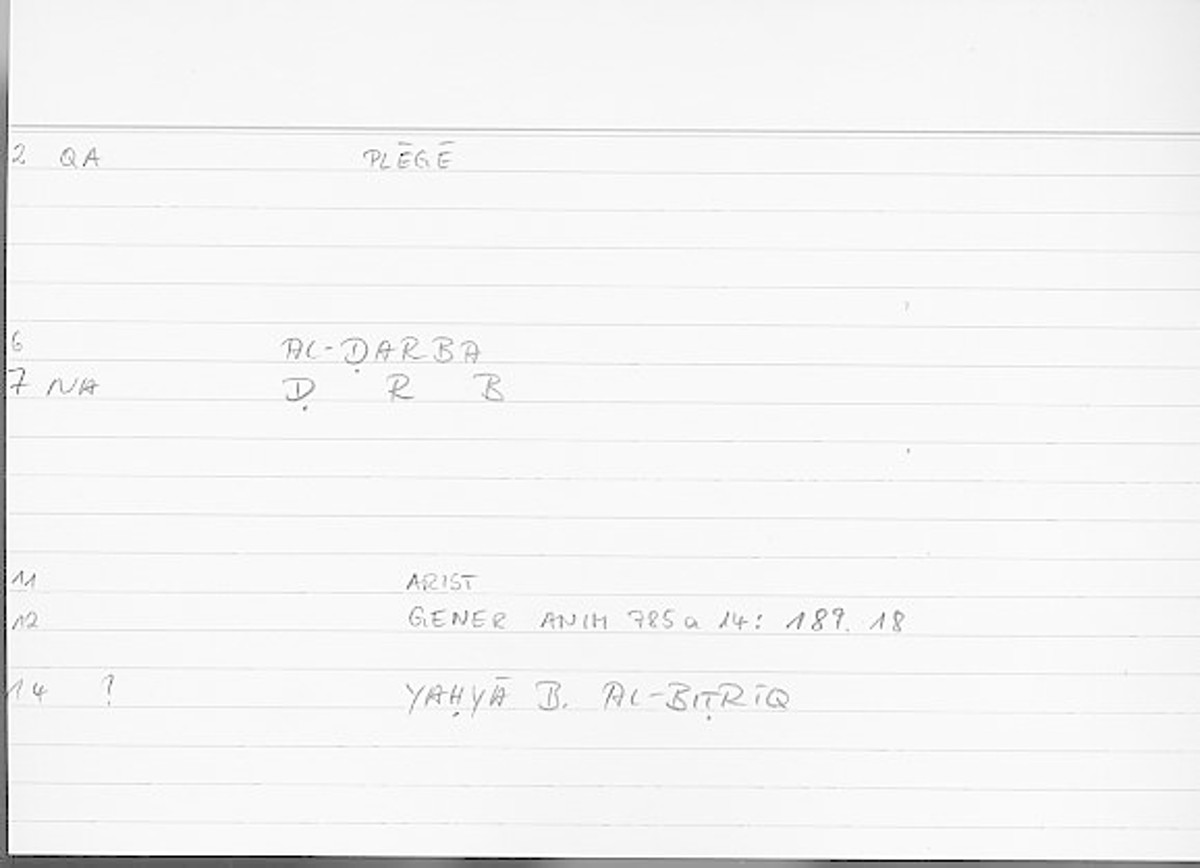 2 QA PLĒGĒ
6 AL-ḌARBA
7 NA Ḍ R B
11 ARIST
12 GENER ANIM 785a 14: 189. 18
14 ? YAḤYĀ B. AL-BIṬRĪQ